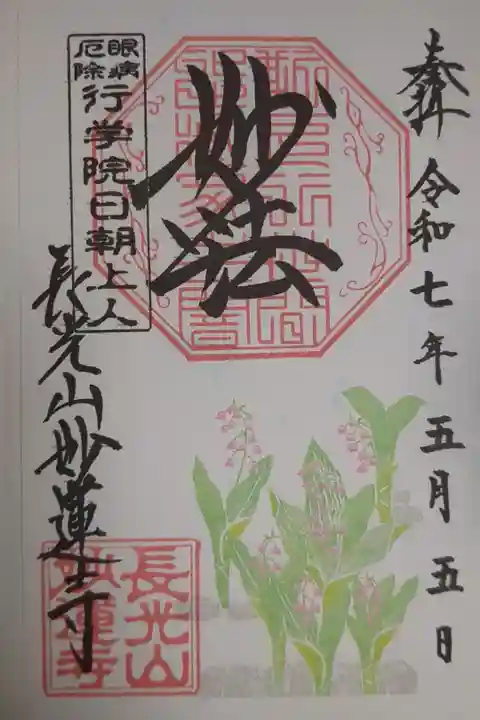 奉拝 令和七年五月五日
妙法
眼病
厄除
行学院日朝上人
長光山妙蓮寺
長光山
妙蓮寺